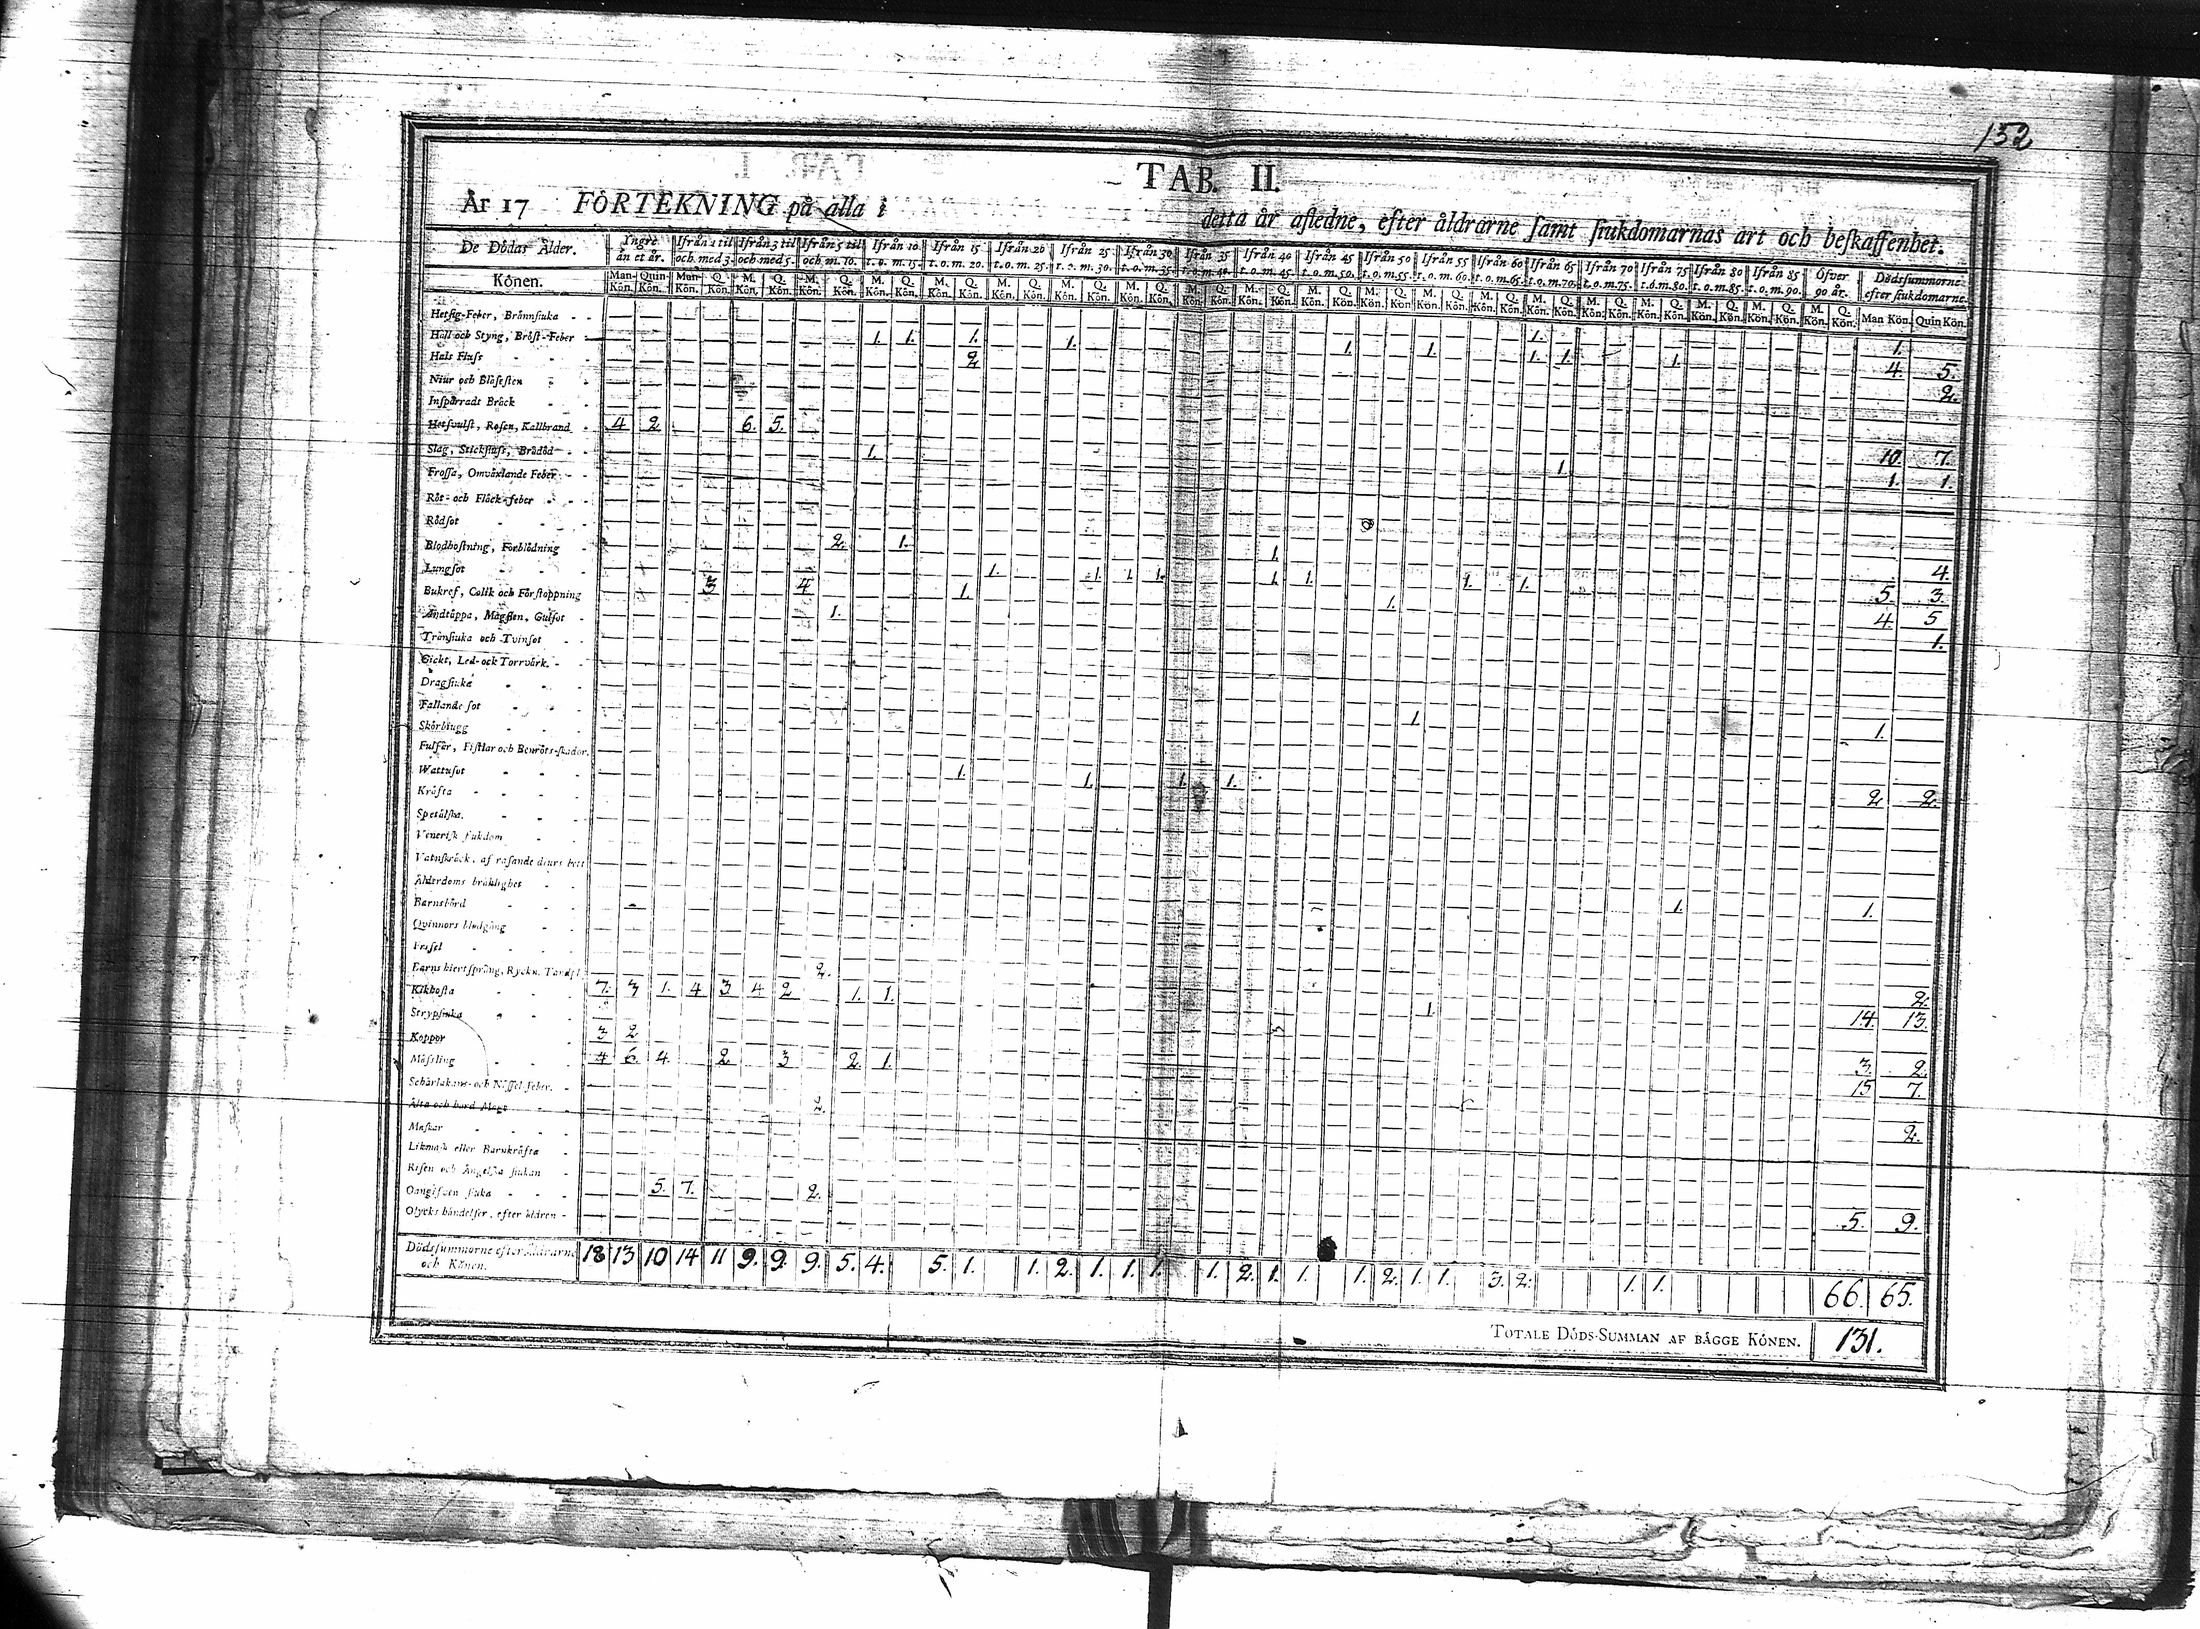 152
TAB. II.
År 17 FÖRTEKNING på alla i detta år afledne, efter åldrarne samt siukdomarnas art och beskaffenhet.
De Dödas Ålder. Yngre än et år. Ifrån 1 til och med 3. Ifrån 3 til och med 5. Ifrån 5 til och m. 10. Ifrån 10 t. o. m. 15. Ifrån 15 t. o. m. 20. Ifrån 20 t. o. m. 25. Ifrån 25 t. o. m. 30. Ifrån 30 t. o. m. 35. Ifrån 35 t. o. m. 40. Ifrån 40 t. o. m. 45. Ifrån 45 t. o. m. 50. Ifrån 50 t. o. m. 55. Ifrån 55 t. o. m. 60. Ifrån 60 t. o. m. 65. Ifrån 65 t. o. m. 70. Ifrån 70 t. o. m. 75. Ifrån 75 t. o. m. 80. Ifrån 80 t. o. m. 85. Ifrån 85 t. o. m. 90. Öfver 90 år. Dödssummorne efter siukdomarne.
Könen. Man Kön. Quin Kön. Man Kön. Q. Kön. M. Kön. Q. Kön. M. Kön. Q. Kön. M. Kön. Q. Kön. M. Kön. Q. Kön. M. Kön. Q. Kön. M. Kön. Q. Kön. M. Kön. Q. Kön. M. Kön. Q. Kön. M. Kön. Q. Kön. M. Kön. Q. Kön. M. Kön. Q. Kön. M. Kön. Q. Kön. M. Kön. Q. Kön. M. Kön. Q. Kön. M. Kön. Q. Kön. M. Kön. Q. Kön. M. Kön. Q. Kön. M. Kön. Q. Kön. M. Kön. Q. Kön. Man Kön. Quin Kön.
Hetsig-Feber, Brännsiuka
Håll och Styng, Bröst-Feber 1. 1. 1. 1. 1. 1.
Hals Fluss 2 1. 1. 1. 1. 1. 4. 5.
Niur och Blåsesten 2.
Inspärradt Bråck
Hetsvulst, Rosen, Kallbrand 4 2 6. 5.
Slag, Stickfluss, Brådöd 1. 10. 7.
Frossa, Omväxlande Feber 1. 1. 1.
Röt- och Fläck-feber
Rödsot
Blodhostning, Förblödning 2. 1. 1.
Lungsot 1. 1. 1. 1. 1. 1. 1. 1. 4.
Bukref, Colik och Förstoppning 3 4 1. 1. 5. 3.
Andtäppa, Mågsten, Gulsot 1. 4. 5
Tränsiuka och Tvinsot 1.
Gickt, Led- ock Torrvärk.
Dragsiuka
Fallande sot
Skörbiugg 1. 1.
Fulsår, Fistlar och Benröts-skador.
Wattusot 1. 1. 1. 1.
Kräfta 2 2.
Spetälska.
Venerisk siukdom
Vatuskräck, af rasande diurs bett
Ålderdoms bräklighet
Barnsbörd 1. 1.
Qvinnors blodgång
Frisel
Barns hiertsprång, Ryckn. Tandsl. 2.
Kikhosta 7. 3 1. 4 3. 4 2 1. 1. 2.
Strypsiuka 1. 14. 13.
Koppor 3 2
Mässling 4 6. 4. 2. 3 2. 1. 3. 2.
Schärlakans- och Nässel-feber. 15 7.
Älta och hård Mage 2.
Maskar 2.
Likmask eller Barnkräfta
Risen och Ängelska siukan
Oangifven siuka 5. 7. 2.
Olycks händelser, efter åldren 5. 9.
Dödssummorne efter Åldrarne och Könen. 18 13 10 14 11 9. 9. 9. 5. 4. 5. 1. 1. 2. 1. 1. 1. 1. 2. 1. 1. 1. 2. 1. 1. 3. 2. 1. 1. 66. 65.
TOTALE DÖDS-SUMMAN AF BÄGGE KÖNEN. 131.